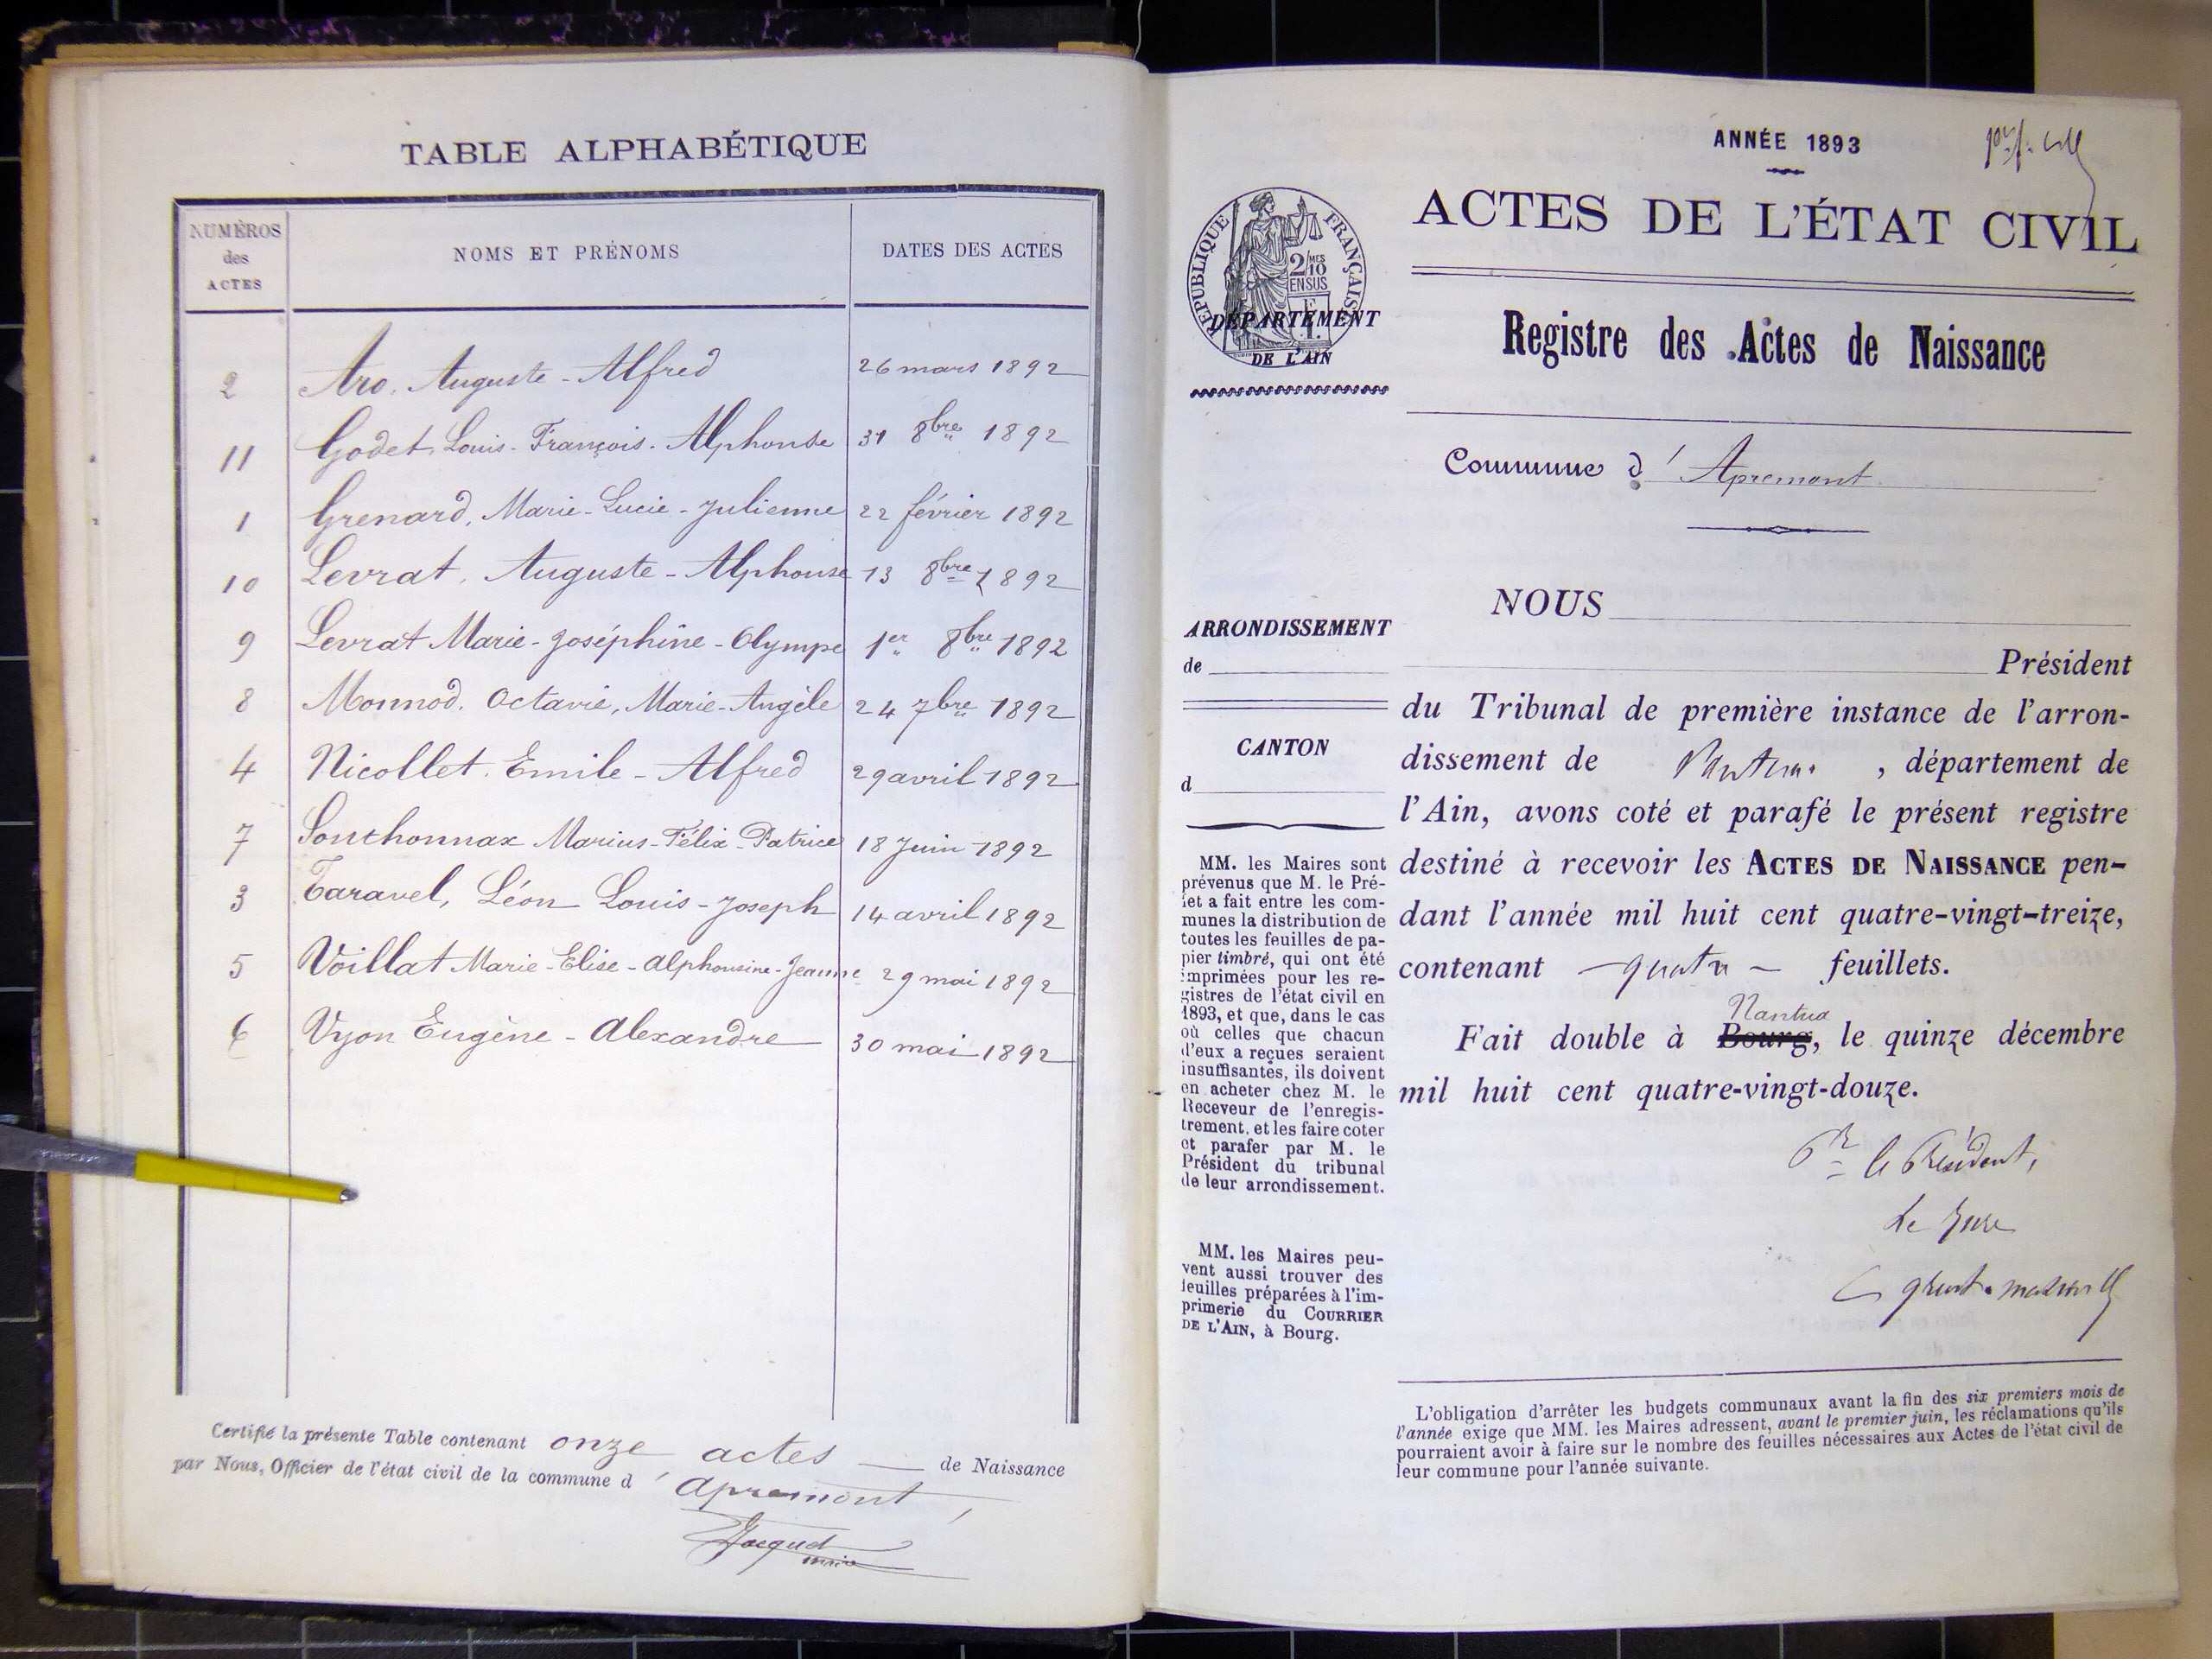 TABLE ALPHABÉTIQUE
NUMÉROS des ACTES
NOMS ET PRÉNOMS
DATES DES ACTES
2 Aro. Auguste - Alfred 26 mars 1892
11 Godet, Louis - François - Alphonse 31 8bre 1892
1 Grenard, Marie - Lucie - Julienne 22 février 1892
10 Levrat, Auguste - Alphonse 13 8bre 1892
9 Levrat Marie - Joséphine - Olympe 1er 8bre 1892
8 Monnod. Octavie, Marie - Angèle 24 7bre 1892
4 Nicollet. Emile - Alfred 29 avril 1892
7 Sonthonnax Marius - Félix - Patrice 18 Juin 1892
3 Taravel, Léon Louis - Joseph 14 avril 1892
5 Voillat Marie - Elise - Alphonsine - Jeanne 29 mai 1892
6 Vyon Eugène - Alexandre 30 mai 1892
Certifié la présente Table contenant onze actes de Naissance
par Nous, Officier de l'état civil de la commune d'Apremont,
Jacquet
maire
ANNÉE 1893
ACTES DE L'ÉTAT CIVIL
RÉPUBLIQUE FRANÇAISE
2/MES
10
EN SUS
DÉPARTEMENT
DE L'AIN
Registre des Actes de Naissance
Commune d'Apremont
ARRONDISSEMENT
de
CANTON
d
MM. les Maires sont
prévenus que M. le Pré-
fet a fait entre les com-
munes la distribution de
toutes les feuilles de pa-
pier timbré, qui ont été
imprimées pour les re-
gistres de l'état civil en
1893, et que, dans le cas
où celles que chacun
d'eux a reçues seraient
insuffisantes, ils doivent
en acheter chez M. le
Receveur de l'enregis-
trement, et les faire coter
et parafer par M. le
Président du tribunal
de leur arrondissement.
MM. les Maires peu-
vent aussi trouver des
feuilles préparées à l'im-
primerie du COURRIER
DE L'AIN, à Bourg.
NOUS
Président
du Tribunal de première instance de l'arron-
dissement de Nantua, département de
l'Ain, avons coté et parafé le présent registre
destiné à recevoir les ACTES DE NAISSANCE pen-
dant l'année mil huit cent quatre-vingt-treize,
contenant - quatre - feuillets.
Nantua
Fait double à Bourg, le quinze décembre
mil huit cent quatre-vingt-douze.
Pr le Président,
Le Juge
L'obligation d'arrêter les budgets communaux avant la fin des six premiers mois de
l'année exige que MM. les Maires adressent, avant le premier juin, les réclamations qu'ils
pourraient avoir à faire sur le nombre des feuilles nécessaires aux Actes de l'état civil de
leur commune pour l'année suivante.